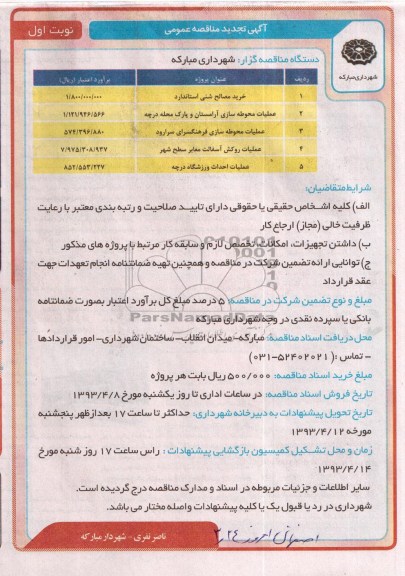 آگهی تجدید مناقصه عمومی
نوبت اول
شهرداری مبارکه
دستگاه مناقصه گزار: شهرداری مبارکه
ردیف عنوان پروژه برآورد اعتبار (ریال)
۱ خرید مصالح شنی استاندارد ۱/۸۰۰/۰۰۰/۰۰۰
۲ عملیات محوطه سازی آرامستان و پارک محله درچه ۱/۱۲۱/۹۲۶/۵۶۶
۳ عملیات محوطه سازی فرهنگسرای سرارود ۵۷۲/۳۹۶/۸۸۰
۴ عملیات روکش آسفالت معابر سطح شهر ۷/۹۷۵/۳۰۸/۹۳۷
۵ عملیات احداث ورزشگاه درچه ۸۵۲/۵۵۳/۲۳۷
شرایط متقاضیان:
الف) کلیه اشخاص حقیقی یا حقوقی دارای تایید صلاحیت و رتبه بندی معتبر با رعایت
ظرفیت خالی (مجاز) ارجاع کار
ب) داشتن تجهیزات، امکانات، تخصص لازم و سابقه کار مرتبط با پروژه های مذکور
ج) توانایی ارائه تضمین شرکت در مناقصه و همچنین تهیه ضمانتنامه انجام تعهدات جهت
عقد قرارداد
مبلغ و نوع تضمین شرکت در مناقصه: ۵ درصد مبلغ کل برآورد اعتبار بصورت ضمانتنامه
بانکی یا سپرده نقدی در وجه شهرداری مبارکه
محل دریافت اسناد مناقصه: مبارکه- میدان انقلاب- ساختمان شهرداری- امور قراردادها
- تماس: (۵۲۴۰۲۰۲۱-۰۳۱)
مبلغ خرید اسناد مناقصه: ۵۰۰/۰۰۰ ریال بابت هر پروژه
تاریخ فروش اسناد مناقصه: در ساعات اداری تا روز یکشنبه مورخ ۱۳۹۳/۴/۸
تاریخ تحویل پیشنهادات به دبیرخانه شهرداری: حداکثر تا ساعت ۱۷ بعدازظهر پنجشنبه
مورخه ۱۳۹۳/۴/۱۲
زمان و محل تشکیل کمیسیون بازگشایی پیشنهادات: راس ساعت ۱۷ روز شنبه مورخ
۱۳۹۳/۴/۱۴
سایر اطلاعات و جزئیات مربوطه در اسناد و مدارک مناقصه درج گردیده است.
شهرداری در رد یا قبول یک یا کلیه پیشنهادات واصله مختار می باشد.
ناصر نفری - شهردار مبارکه
اصفهان امروز ۳،۲۴